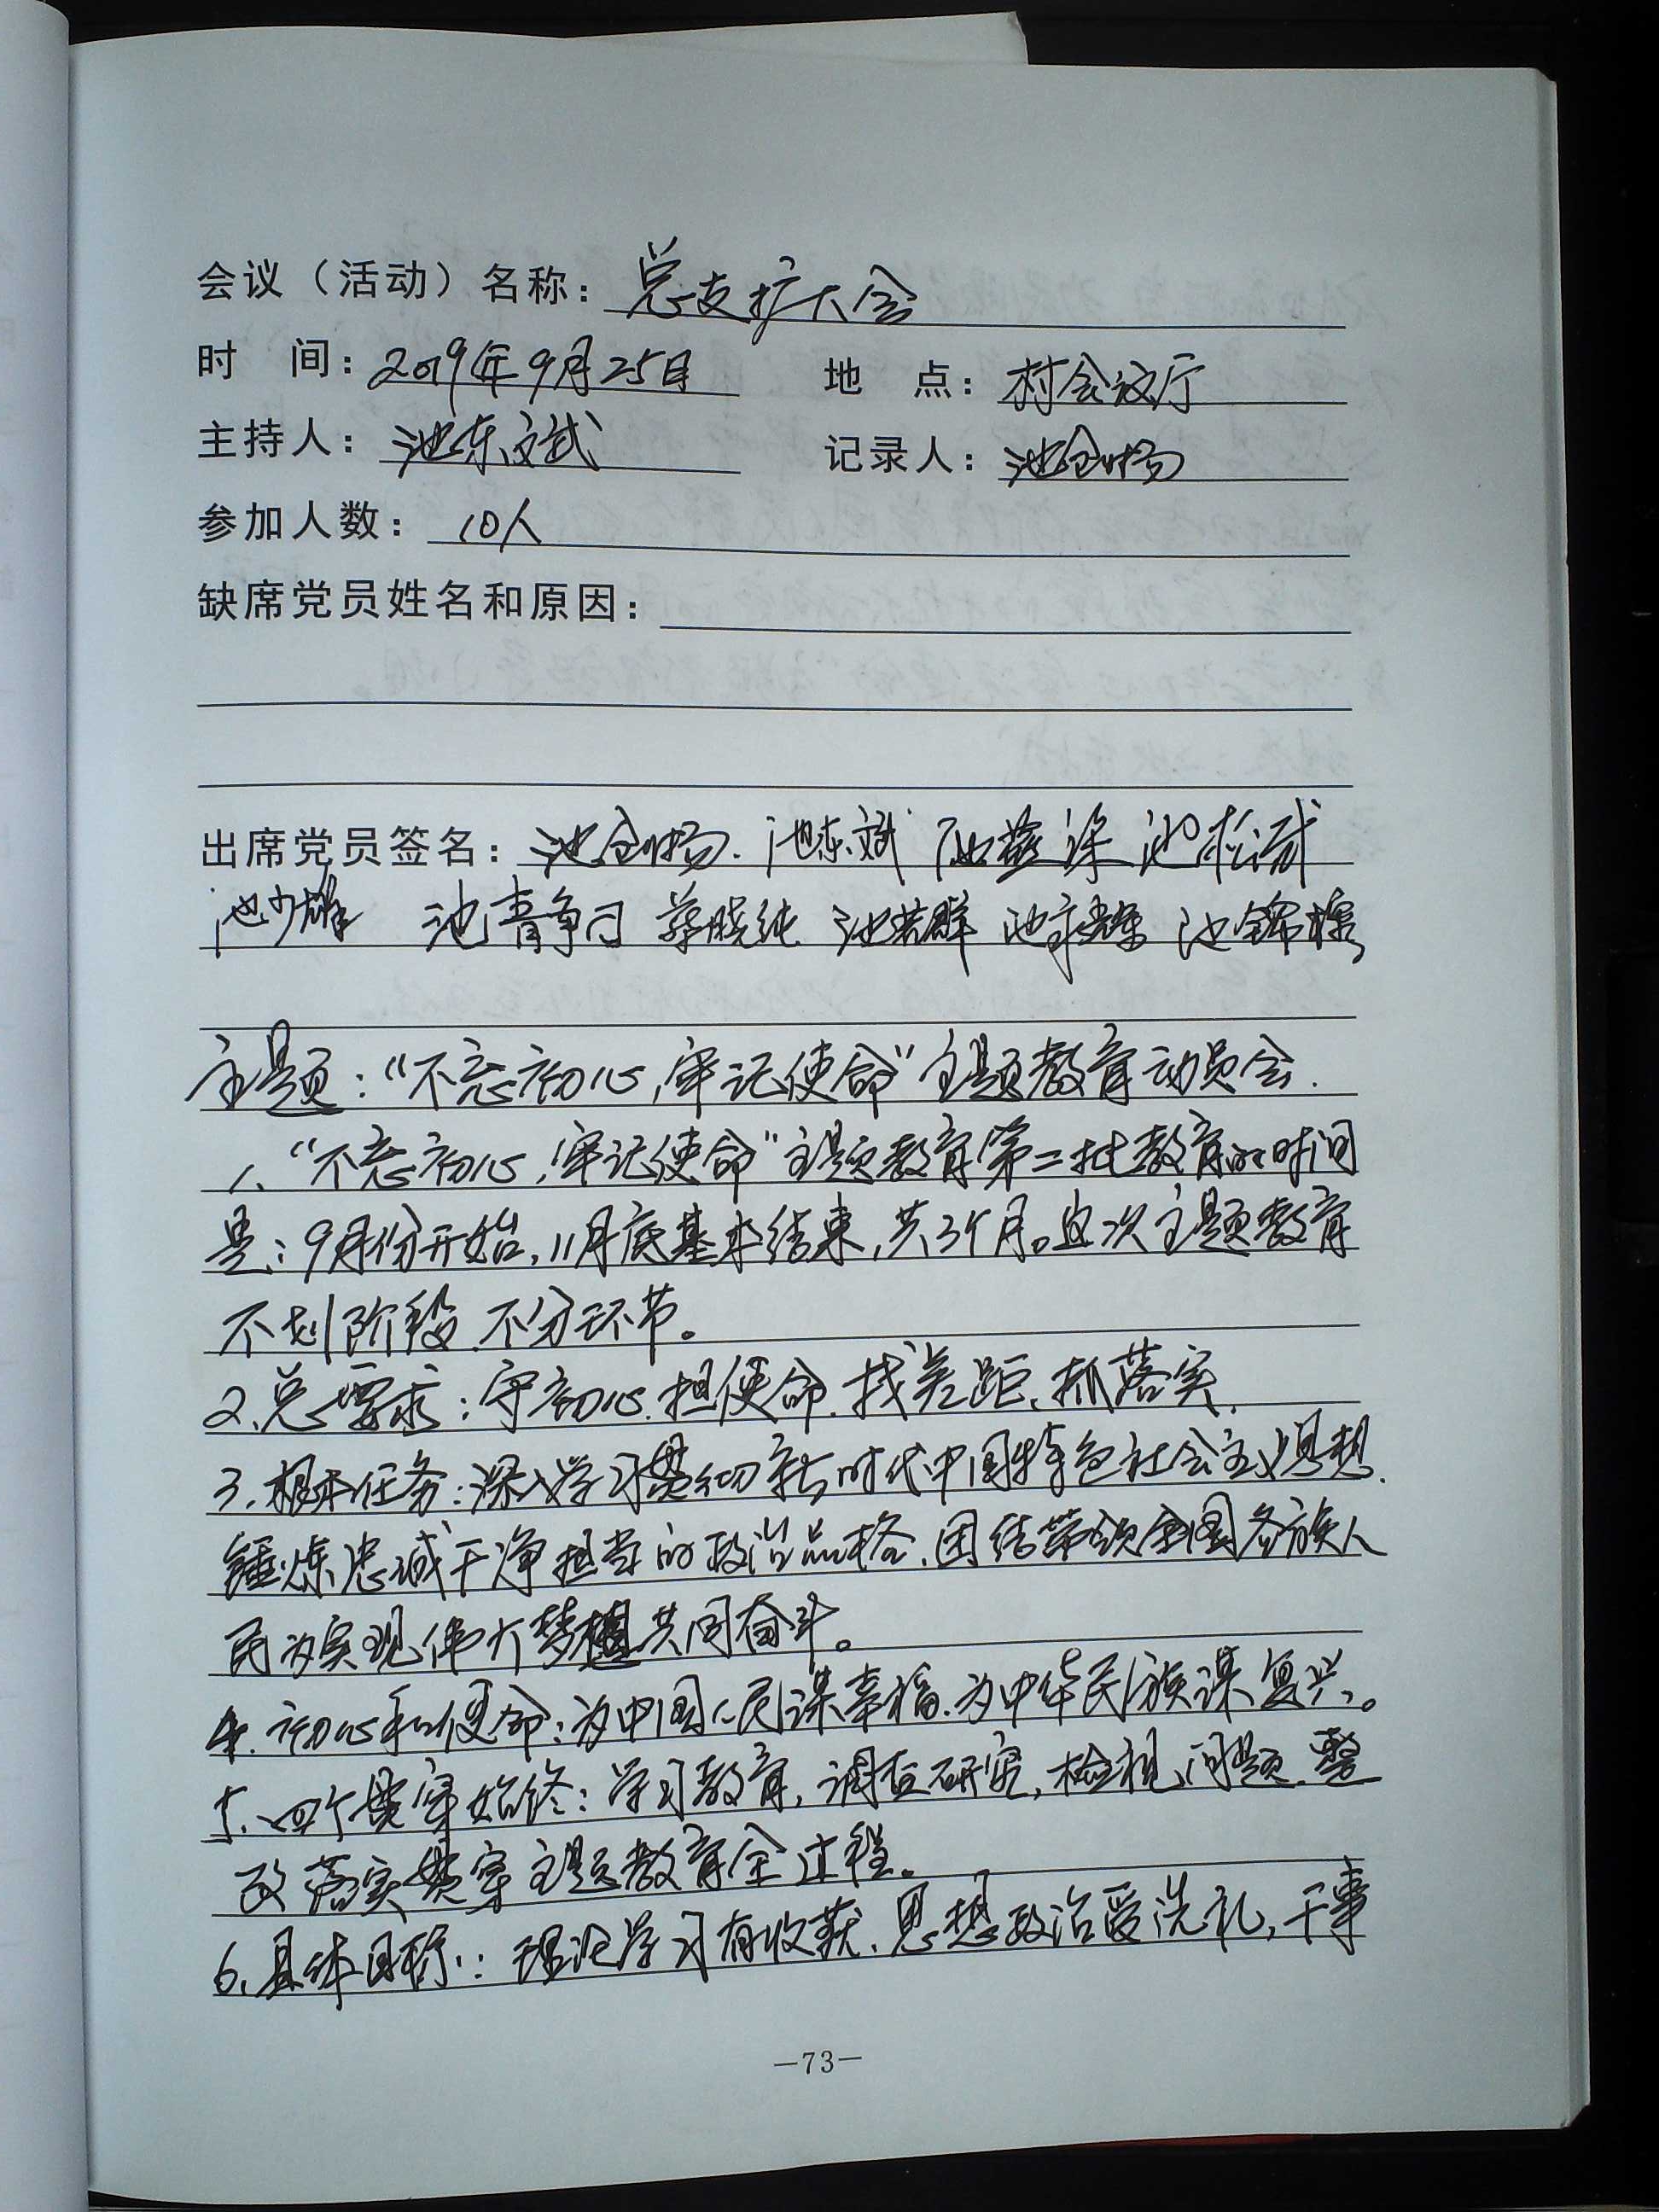 会议（活动）名称：总支扩大会
时　间：2019年9月25日　地　点：村会议厅
主持人：池东斌　记录人：池
参加人数：10人
缺席党员姓名和原因：
出席党员签名：池 池东斌 池松
池少雄 池静 晓纯 池 池 池锦
主题：“不忘初心，牢记使命”主题教育动员会．
1、“不忘初心，牢记使命”主题教育第二批教育的时间
是：9月份开始，11月底基本结束，共3个月。这次主题教育
不划阶段、不分环节。
2、总要求：守初心、担使命、找差距、抓落实．
3、根本任务：深入学习贯彻新时代中国特色社会主义思想．
锤炼忠诚干净担当的政治品格、团结带领全国各族人
民为实现伟大梦想共同奋斗。
4、初心和使命：为中国人民谋幸福、为中华民族谋复兴。
5、四个贯穿始终：学习教育，调查研究，检视问题、整
改落实贯穿主题教育全过程。
6、具体目标：理论学习有收获、思想政治受洗礼，干事
—73—